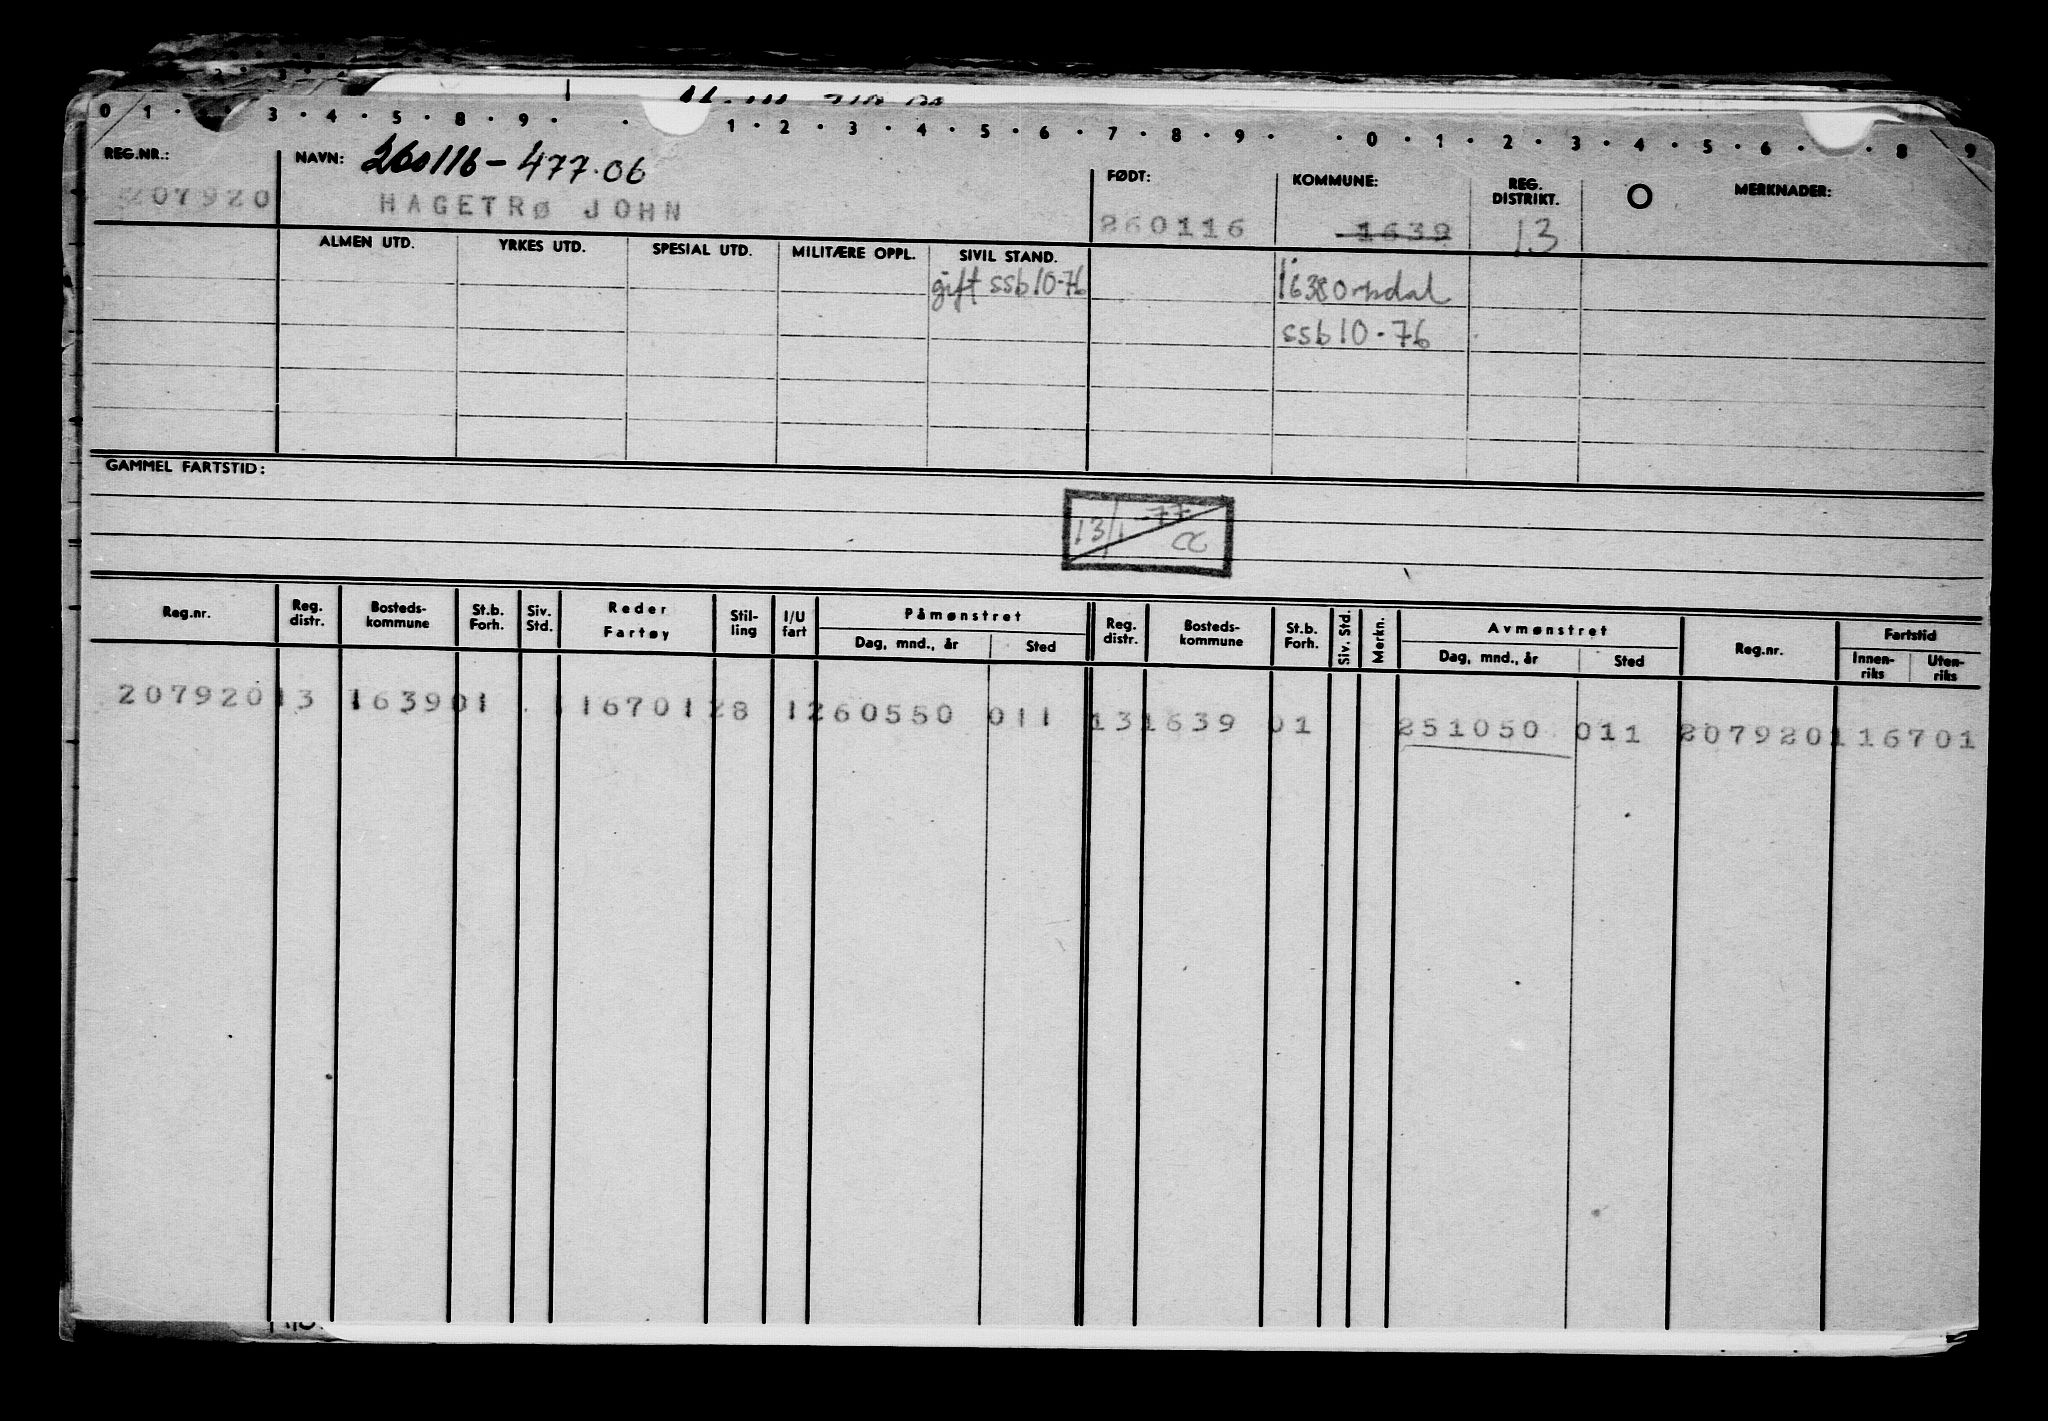 0 1 · 3 · 4 · 5 · 8 · 9 · · 1 · 2 · 3 · 4 · 5 · 6 · 7 · 8 · 9 · · 0 · 1 · 2 · 3 · 4 · 5 · 6 · 8 9
REG.NR.: NAVN: 260116 - 477.06 FØDT: KOMMUNE: REG. DISTRIKT. O MERKNADER:
207920 HAGETRØ JOHN 260116 1639 13
ALMEN UTD. YRKES UTD. SPESIAL UTD. MILITÆRE OPPL. SIVIL STAND.
gift ssb 10-76 1638 Orkdal
ssb 10-76
GAMMEL FARTSTID:
13/1 -77
Reg.nr. Reg. distr. Bosteds- kommune St.b. Forh. Siv. Std. Reder Fartøy Stil- ling I/U fart Påmønstret Reg. distr. Bosteds- kommune St.b. Forh. Siv. Std. Merkn. Avmønstret Reg.nr. Fartstid
Dag, mnd., år Sted Dag, mnd., år Sted Innen- riks Uten- riks
207920 13 1639 01 116701 28 1 260550 011 13 1639 01 251050 011 207920 1 16701